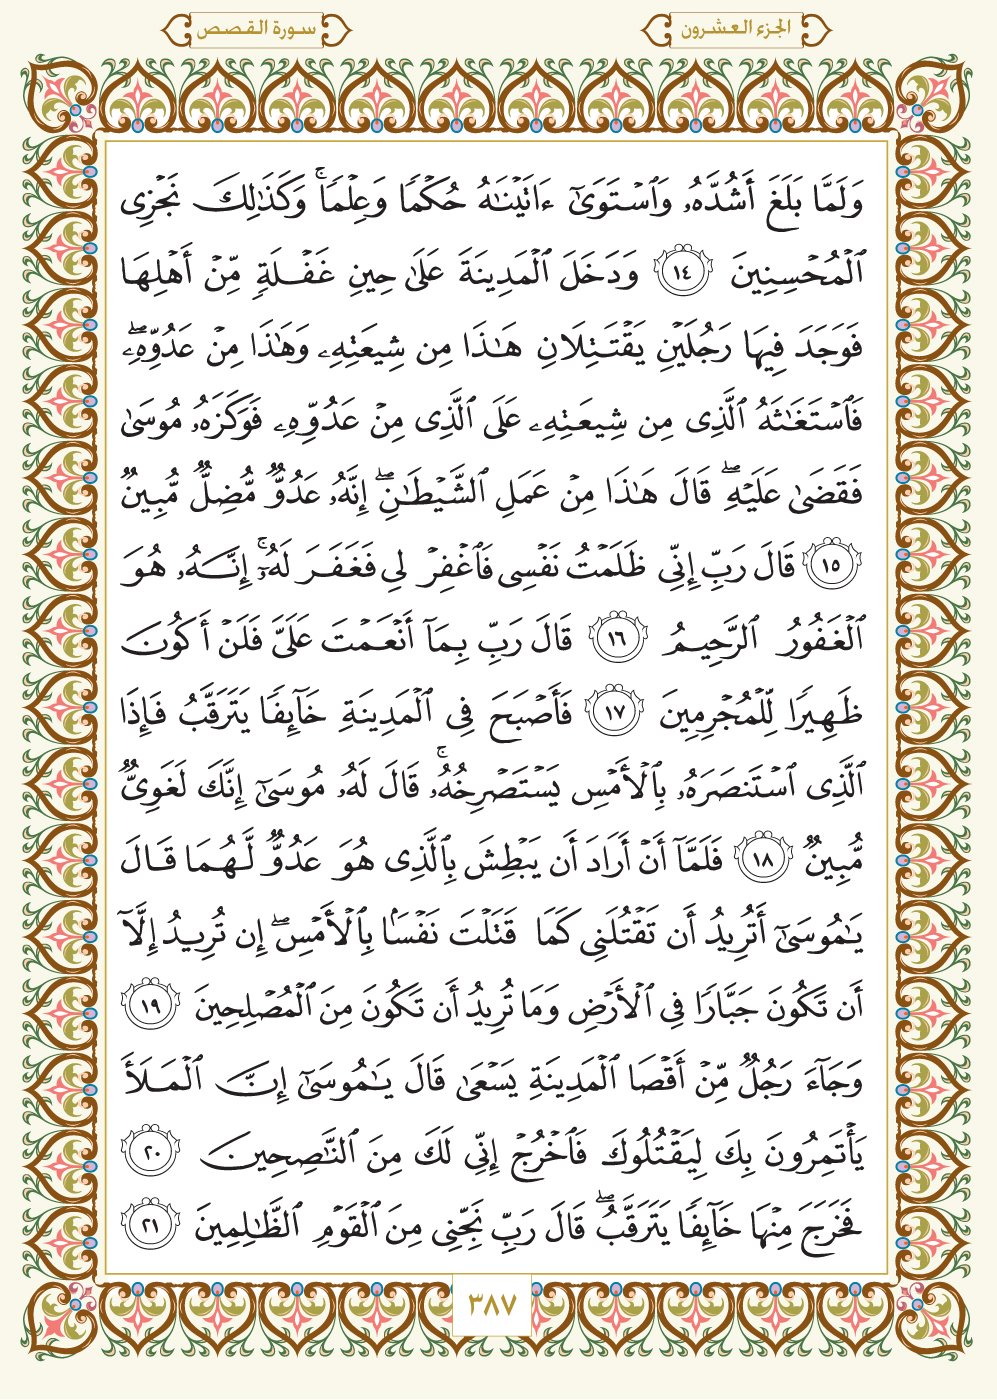 الجزء العشرون
سورة القصص
وَلَمَّا بَلَغَ أَشُدَّهُۥ وَٱسۡتَوَىٰٓ ءَاتَيۡنَٰهُ حُكۡمٗا وَعِلۡمٗاۚ وَكَذَٰلِكَ نَجۡزِي
ٱلۡمُحۡسِنِينَ ١٤ وَدَخَلَ ٱلۡمَدِينَةَ عَلَىٰ حِينِ غَفۡلَةٖ مِّنۡ أَهۡلِهَا
فَوَجَدَ فِيهَا رَجُلَيۡنِ يَقۡتَتِلَانِ هَٰذَا مِن شِيعَتِهِۦ وَهَٰذَا مِنۡ عَدُوِّهِۦۖ
فَٱسۡتَغَٰثَهُ ٱلَّذِي مِن شِيعَتِهِۦ عَلَى ٱلَّذِي مِنۡ عَدُوِّهِۦ فَوَكَزَهُۥ مُوسَىٰ
فَقَضَىٰ عَلَيۡهِۖ قَالَ هَٰذَا مِنۡ عَمَلِ ٱلشَّيۡطَٰنِۖ إِنَّهُۥ عَدُوّٞ مُّضِلّٞ مُّبِينٞ
١٥ قَالَ رَبِّ إِنِّي ظَلَمۡتُ نَفۡسِي فَٱغۡفِرۡ لِي فَغَفَرَ لَهُۥٓۚ إِنَّهُۥ هُوَ
ٱلۡغَفُورُ ٱلرَّحِيمُ ١٦ قَالَ رَبِّ بِمَآ أَنۡعَمۡتَ عَلَيَّ فَلَنۡ أَكُونَ
ظَهِيرٗا لِّلۡمُجۡرِمِينَ ١٧ فَأَصۡبَحَ فِي ٱلۡمَدِينَةِ خَآئِفٗا يَتَرَقَّبُ فَإِذَا
ٱلَّذِي ٱسۡتَنصَرَهُۥ بِٱلۡأَمۡسِ يَسۡتَصۡرِخُهُۥۚ قَالَ لَهُۥ مُوسَىٰٓ إِنَّكَ لَغَوِيّٞ
مُّبِينٞ ١٨ فَلَمَّآ أَنۡ أَرَادَ أَن يَبۡطِشَ بِٱلَّذِي هُوَ عَدُوّٞ لَّهُمَا قَالَ
يَٰمُوسَىٰٓ أَتُرِيدُ أَن تَقۡتُلَنِي كَمَا قَتَلۡتَ نَفۡسَۢا بِٱلۡأَمۡسِۖ إِن تُرِيدُ إِلَّآ
أَن تَكُونَ جَبَّارٗا فِي ٱلۡأَرۡضِ وَمَا تُرِيدُ أَن تَكُونَ مِنَ ٱلۡمُصۡلِحِينَ ١٩
وَجَآءَ رَجُلٞ مِّنۡ أَقۡصَا ٱلۡمَدِينَةِ يَسۡعَىٰ قَالَ يَٰمُوسَىٰٓ إِنَّ ٱلۡمَلَأَ
يَأۡتَمِرُونَ بِكَ لِيَقۡتُلُوكَ فَٱخۡرُجۡ إِنِّي لَكَ مِنَ ٱلنَّٰصِحِينَ ٢٠
فَخَرَجَ مِنۡهَا خَآئِفٗا يَتَرَقَّبُۖ قَالَ رَبِّ نَجِّنِي مِنَ ٱلۡقَوۡمِ ٱلظَّٰلِمِينَ ٢١
٣٨٧